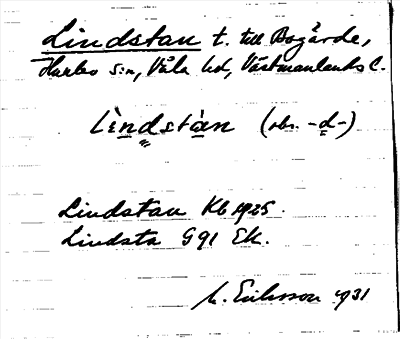 Lindstan t. till Bogårde,
Harbo s:n, Våla hd, Västmanlands l.
lìndstàn (obs. -d-)
Lindstan Kb 1925.
Lindsta G91 Ek.
M. Eriksson 1931